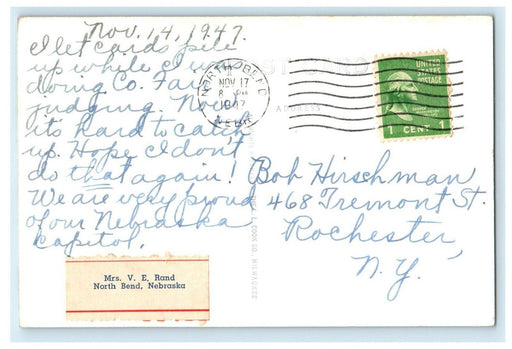 Nov. 14, 1947.
I let cards pile
up while I was
doing Co. Fair
judging. Now
its hard to catch
up. Hope I don't
do that again!
We are very proud
of our Nebraska
Capitol.
Mrs. V. E. Rand
North Bend, Nebraska
NORTH BEND
NOV 17
8 PM
1947
NEBR
UNITED
STATES
POSTAGE
1 CENT 1
ADDRESS
Bob Hirschman
468 Tremont St.
Rochester,
N.Y.
COOK CO. MILWAUKEE